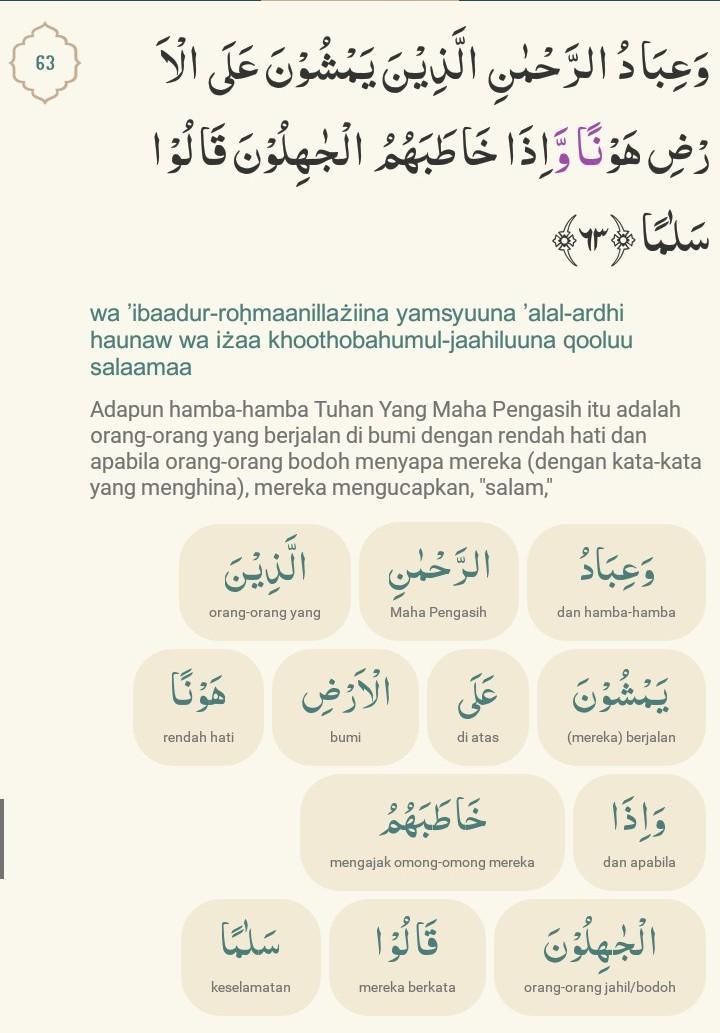 63
وَعِبَادُ الرَّحْمٰنِ الَّذِيْنَ يَمْشُوْنَ عَلَى الْاَ
رْضِ هَوْنًا وَّاِذَا خَاطَبَهُمُ الْجٰهِلُوْنَ قَالُوْا
سَلٰمًا ﴿٦٣﴾
wa 'ibaadur-roḥmaanillażiina yamsyuuna 'alal-ardhi
haunaw wa iżaa khoothobahumul-jaahiluuna qooluu
salaamaa
Adapun hamba-hamba Tuhan Yang Maha Pengasih itu adalah
orang-orang yang berjalan di bumi dengan rendah hati dan
apabila orang-orang bodoh menyapa mereka (dengan kata-kata
yang menghina), mereka mengucapkan, "salam,"
وَعِبَادُ الرَّحْمٰنِ الَّذِيْنَ
dan hamba-hamba Maha Pengasih orang-orang yang
يَمْشُوْنَ عَلَى الْاَرْضِ هَوْنًا
(mereka) berjalan di atas bumi rendah hati
وَاِذَا خَاطَبَهُمُ
dan apabila mengajak omong-omong mereka
الْجٰهِلُوْنَ قَالُوْا سَلٰمًا
orang-orang jahil/bodoh mereka berkata keselamatan